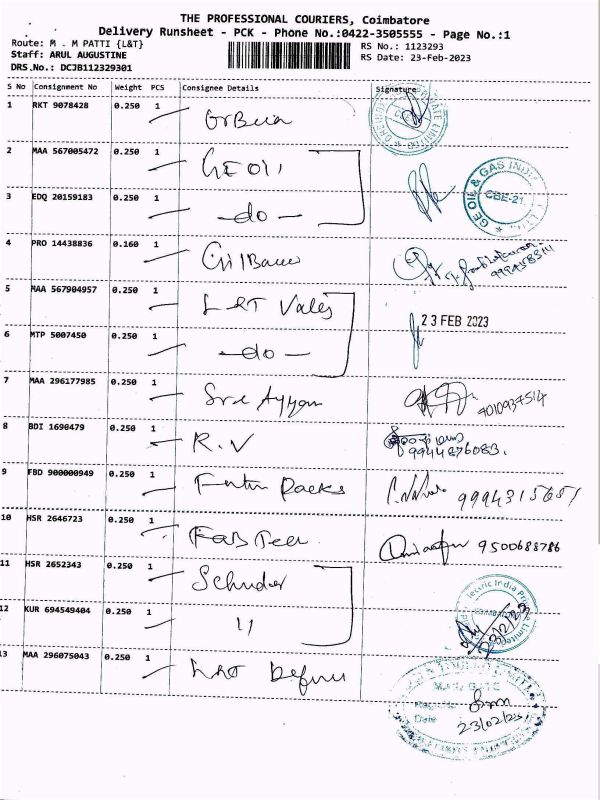 THE PROFESSIONAL COURIERS, Coimbatore
Delivery Runsheet - PCK - Phone No.:0422-3505555 - Page No.:1
Route: M . M PATTI {L&T}
RS No.: 1123293
Staff: ARUL AUGUSTINE
RS Date: 23-Feb-2023
DRS.No.: DCJB112329301
S No Consignment No Weight PCS Consignee Details Signature
1 RKT 9078428 0.250 1
2 MAA 567005472 0.250 1 GE Oil
3 EDQ 20159183 0.250 1 -do-
GE OIL & GAS INDIA
CBE-21
4 PRO 14438836 0.160 1
5 MAA 567904957 0.250 1 L&T Valves
23 FEB 2023
6 MTP 5007450 0.250 1 -do-
7 MAA 296177985 0.250 1 Sree Ayyan
4010937514
8 BDI 1690479 0.250 1 R.V
9944876083.
9 FBD 900000949 0.250 1 9994315651
10 HSR 2646723 0.250 1 9500688786
11 HSR 2652343 0.250 1
12 KUR 694549404 0.250 1 "
Electric India Private Limited
23/2/23
13 MAA 296075043 0.250 1 L&T
Date 23/02/23